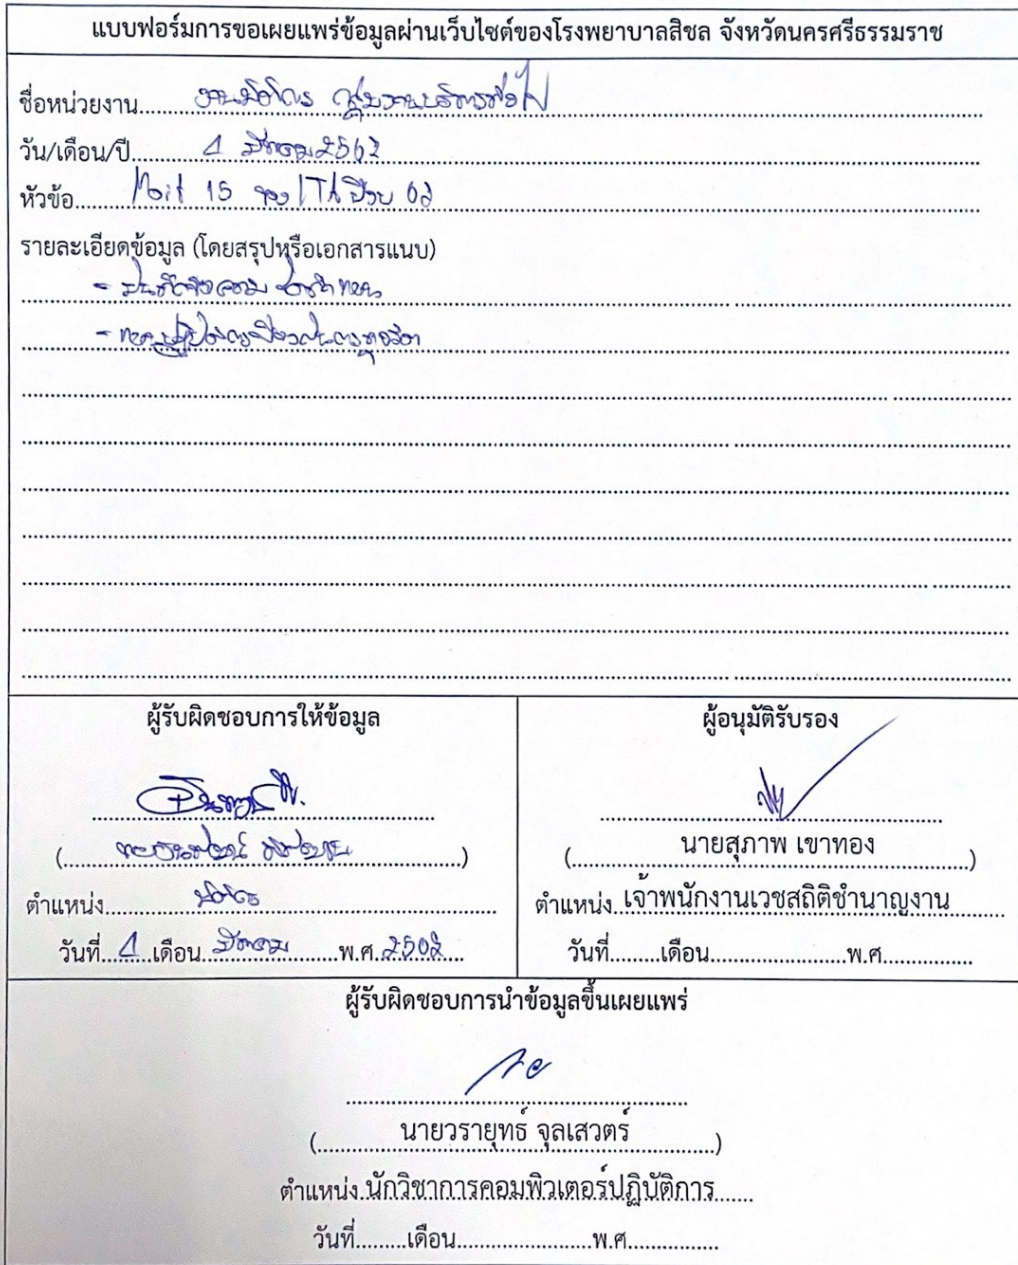 แบบฟอร์มการขอเผยแพร่ข้อมูลผ่านเว็บไซต์ของโรงพยาบาลสิชล จังหวัดนครศรีธรรมราช
ชื่อหน่วยงาน งานนิติกร กลุ่มงานบริหารทั่วไป
วัน/เดือน/ปี 1 มีนาคม 2562
หัวข้อ 15 ของ ITA ปีงบ 62
รายละเอียดข้อมูล (โดยสรุปหรือเอกสารแนบ)
-
-
ผู้รับผิดชอบการให้ข้อมูล
()
ตำแหน่ง นิติกร
วันที่ 1 เดือน มีนาคม พ.ศ. 2562
ผู้อนุมัติรับรอง
(นายสุภาพ เขาทอง)
ตำแหน่ง เจ้าพนักงานเวชสถิติชำนาญงาน
วันที่.........เดือน.........................พ.ศ................
ผู้รับผิดชอบการนำข้อมูลขึ้นเผยแพร่
(นายวรายุทธ์ จุลเสวตร์)
ตำแหน่ง นักวิชาการคอมพิวเตอร์ปฏิบัติการ
วันที่.........เดือน.........................พ.ศ................